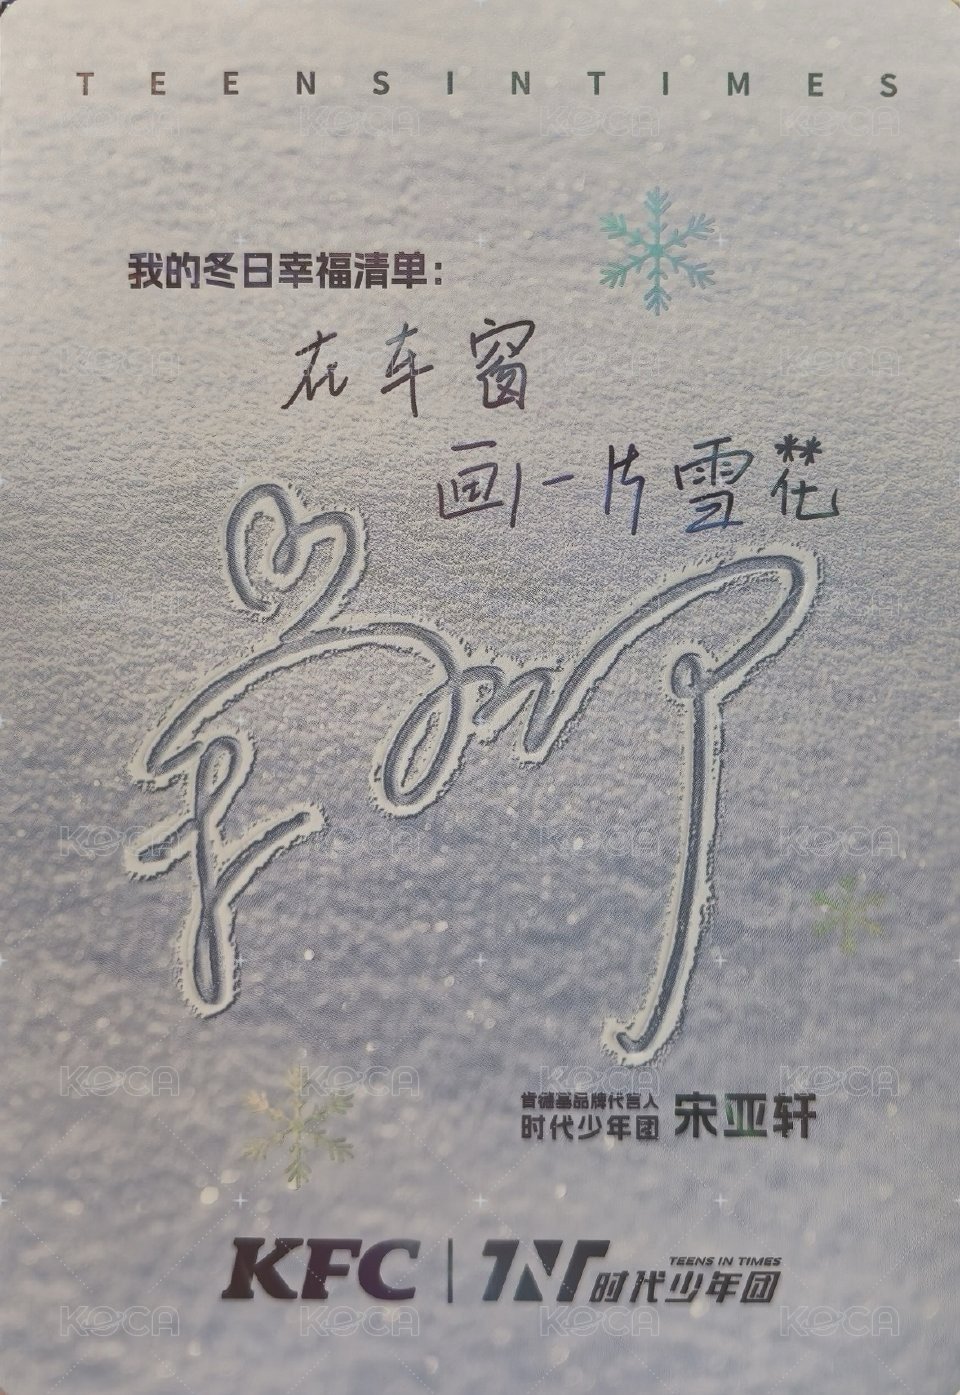 TEENS IN TIMES
我的冬日幸福清单：
在车窗
画一片雪花
肯德基品牌代言人
时代少年团 宋亚轩
KFC | TNT 时代少年团
TEENS IN TIMES
KOCA